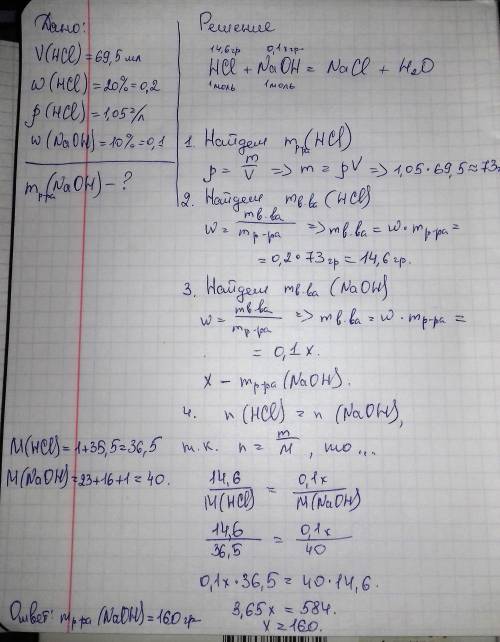 Дано:
V(HCl)=69,5 мл
ω(HCl)=20%=0,2
ρ(HCl)=1,05 г/л
ω(NaOH)=10%=0,1
mр-ра(NaOH) - ?
Решение
14,6гр 0,1xгр
HCl + NaOH = NaCl + H₂O
1моль 1моль
1. Найдем mр-ра(HCl)
ρ = m/V => m = ρV => 1,05·69,5≈73г
2. Найдем mв-ва(HCl)
ω = mв-ва/mр-ра => mв-ва = ω·mр-ра =
= 0,2·73гр = 14,6гр.
3. Найдем mв-ва(NaOH)
ω = mв-ва/mр-ра => mв-ва = ω·mр-ра =
= 0,1x.
x - mр-ра(NaOH).
4. n(HCl) = n(NaOH),
т.к. n = m/M, то...
M(HCl)=1+35,5=36,5
M(NaOH)=23+16+1=40.
14,6/M(HCl) = 0,1x/M(NaOH)
14,6/36,5 = 0,1x/40
0,1x·36,5 = 40·14,6.
3,65x = 584.
x=160.
Ответ: mр-ра(NaOH)=160гр